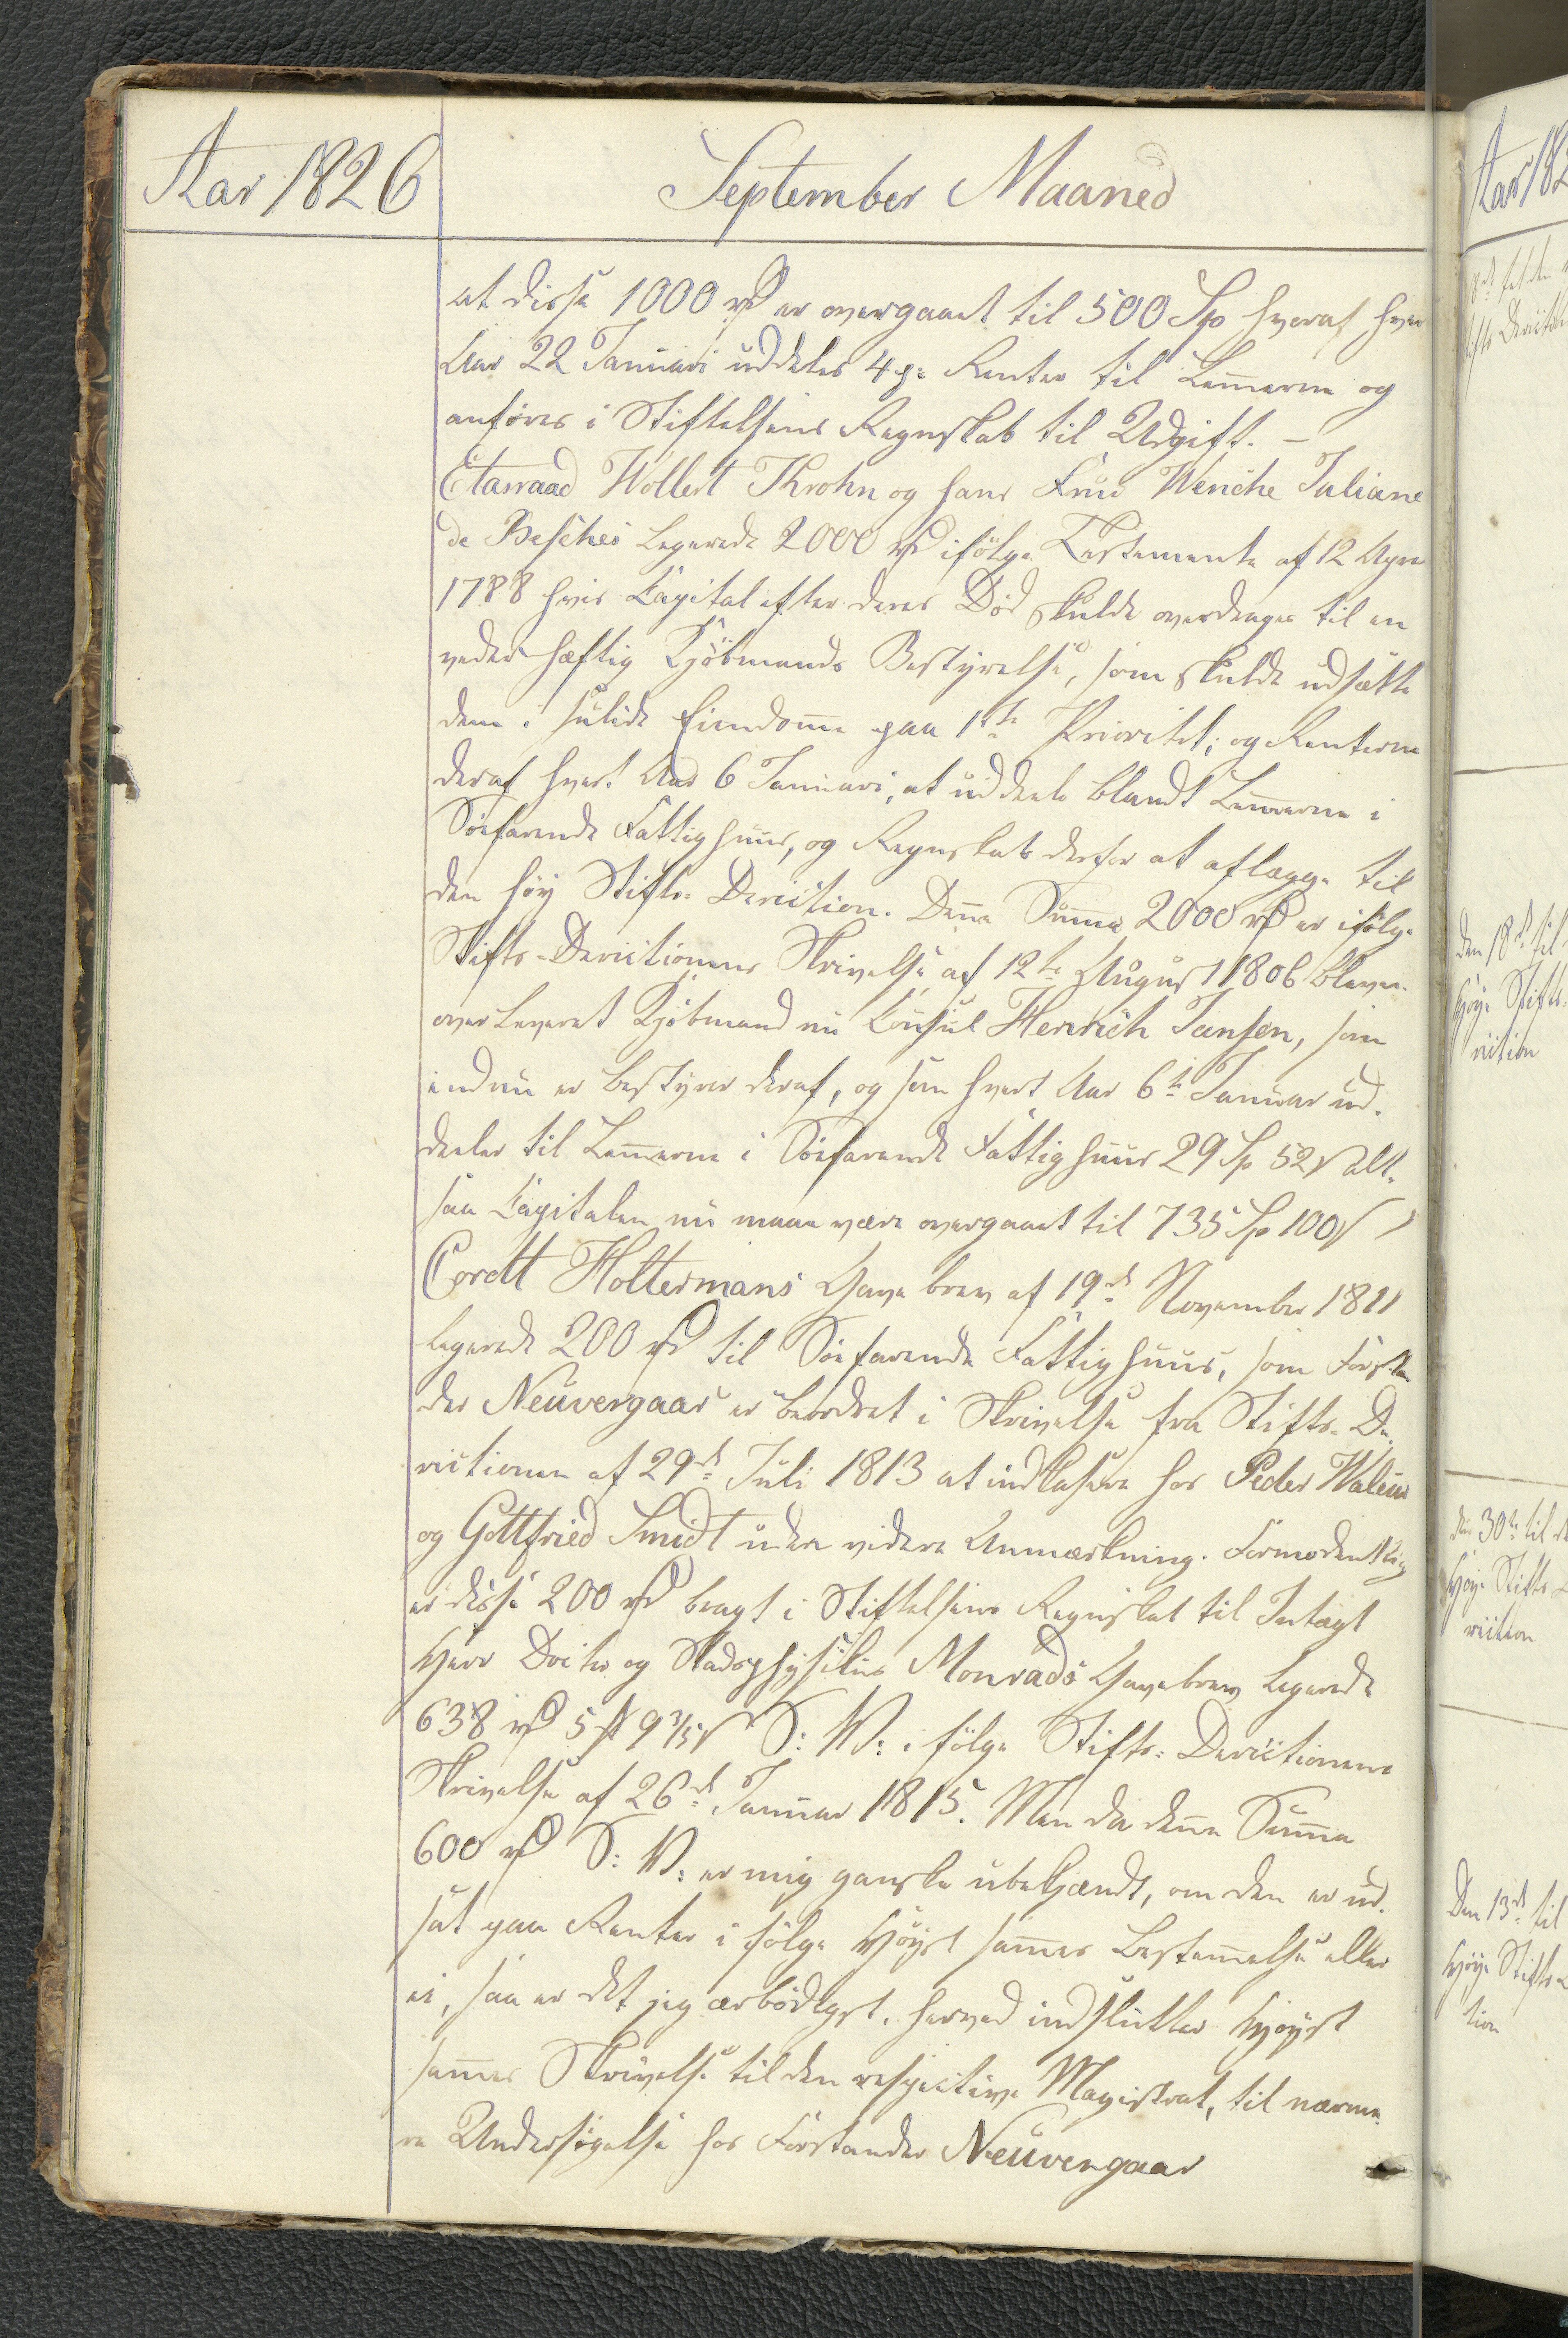 Aar 1826
September Maaned
at disse 1000 rd er overgaaet til 500 Sp hveraf hver
Aar 22 Januari uddeles 4 p: Renter til Lemerne og
anföres i Stiftelsens Regnskab til Udgift. –
Etatsraad Wollert Krohn og hans Frue Wenche Juliane
de Besches legerede 2000 rd ifölge Testamente af 12 Apr
1788 hvis Capital efter deres Död skulde overdrages til en
vederhæftig Kjöbmands Bestyrelse, som skulde udsætte
dem i solide Eiendome paa 1te Prioritet; og Renterne
deraf hvert Aar 6 Januari, at uddeele blandt Lemerne i
Söefarende Fattighuus, og Regnskab derfor at aflægge til
den höy Stifts-Derection. Dene Sume 2000 rd er ifölge
Stifts-Derectionens Skrivelse af 12te August 1806 bleven
overleveret Kjöbmand nu Consul Henrich Jansen, som
endnu er bestyrer deraf, og som hvert Aar 6te Januar ud-
deeler til Lemerne i Söefarende Fattighuus 29 Sp 52 s alt-
saa Capitalen nu maae være overgaaet til 735 Sp 100 s
Cordt Holtermans Gave brev af 19de November 1811
legerede 200 rd til Söefarende Fattighuus, som Forstan
der Neuvengaar er beordret i Skrivelse fra Stifts-De-
rectionen af 29de Juli 1813 at indkasere hos Peder Walem
og Gottfried Smidt uden videre Anmærkning. Formodentlig
er disse 200 rd bragt i Stiftelsens Regnskab til Indtægt
Herr Docter og Stadsphysikus Monrads Gavebrev legerede
638 rd 5 # 9 3/5 s S: V: i fölge Stifts-Derectionens
Skrivelse af 26de Januar 1815. Men da dene Sume
600 rd S: V: er mig ganske ubekjændt, om den er ud-
sat paa Renter i fölge Höyst sames Bestemelse eller
ei, saa er det jeg ærbödigst, herved indslutter Höyst
sames Skrivelse til den respective Magistrat, til nærme-
re Undersögelse hos Forstander Neuvengaar
Aar 182
den 18de til
Höye Stifts-
rection
den 30te til
Höye Stifts-
rection
Den 13de til
Höye Stifts-
tion